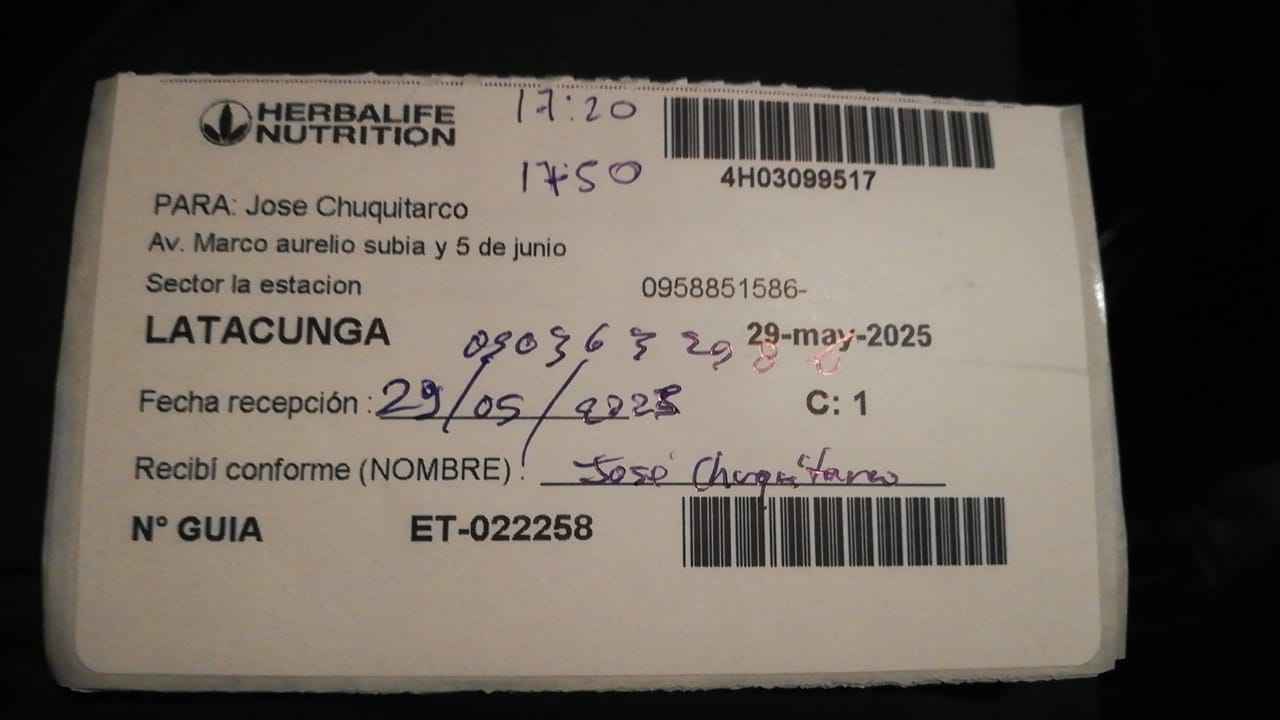 HERBALIFE
NUTRITION
17:20
17:50
4H03099517
PARA: Jose Chuquitarco
Av. Marco aurelio subia y 5 de junio
Sector la estacion
0958851586-
LATACUNGA
29-may-2025
Fecha recepción : 29/05/2025
C: 1
Recibí conforme (NOMBRE) : José Chuquitarco
N° GUIA ET-022258